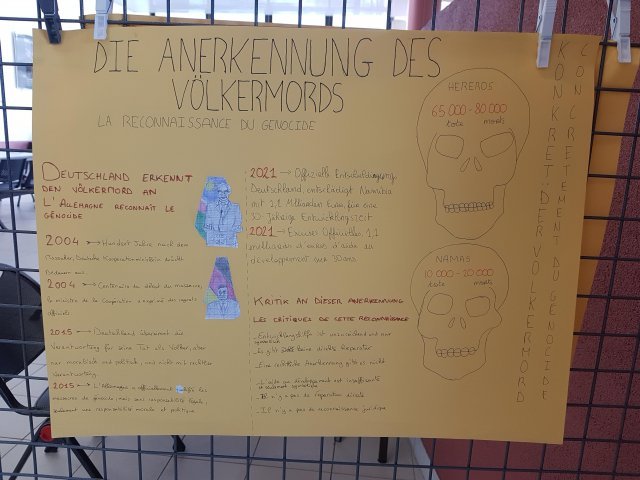 DIE ANERKENNUNG DES
VÖLKERMORDS
LA RECONNAISSANCE DU GENOCIDE
DEUTSCHLAND ERKENNT
DEN VÖLKERMORD AN
L'ALLEMAGNE RECONNAÎT LE
GÉNOCIDE
2004 → Hundert Jahre nach dem
Massaker, Deutsche Kooperationministerin drückt
Bedauern aus
2004 → Centenaire du début du massacre,
le ministre de la Coopération a exprimé des regrets
officiels
2015 → Deutschland übernimmt die
Verantwortung für seine Tat als Völker, aber
nur moralisch und politisch, und nicht mit rechtlicher
Verantwortung.
2015 → L'Allemagne a officiellement les
massacres de génocide, mais sans responsabilité légale,
seulement une responsabilité morale et politique
2021 → Offizielle Entschuldigung,
Deutschland entschädigt Namibia
mit 1,1 Milliarden Euro, für eine
30 Jährige Entwicklungszeit
2021 → Excuses Officielles, 1,1
milliards d'euros d'aide au
développement sur 30 ans
KRITIK AN DIESER ANERKENNUNG
LES CRITIQUES DE CETTE RECONNAISSANCE
- Entwicklungshilfe ist unzureichend und nur
symbolisch
- Es gibt keine direkte Reparatur
- Eine rechtliche Anerkennung gibt es nicht
- L'aide au développement est insuffisante
et seulement symbolique
- Il n'y a pas de réparation directe
- Il n'y a pas de reconnaissance juridique
HEREROS
65 000 - 80 000
tote morts
NAMAS
10 000 - 20 000
tote morts
KONKRET: DER VÖLKERMORD
CONCRETEMENT DU GENOCIDE